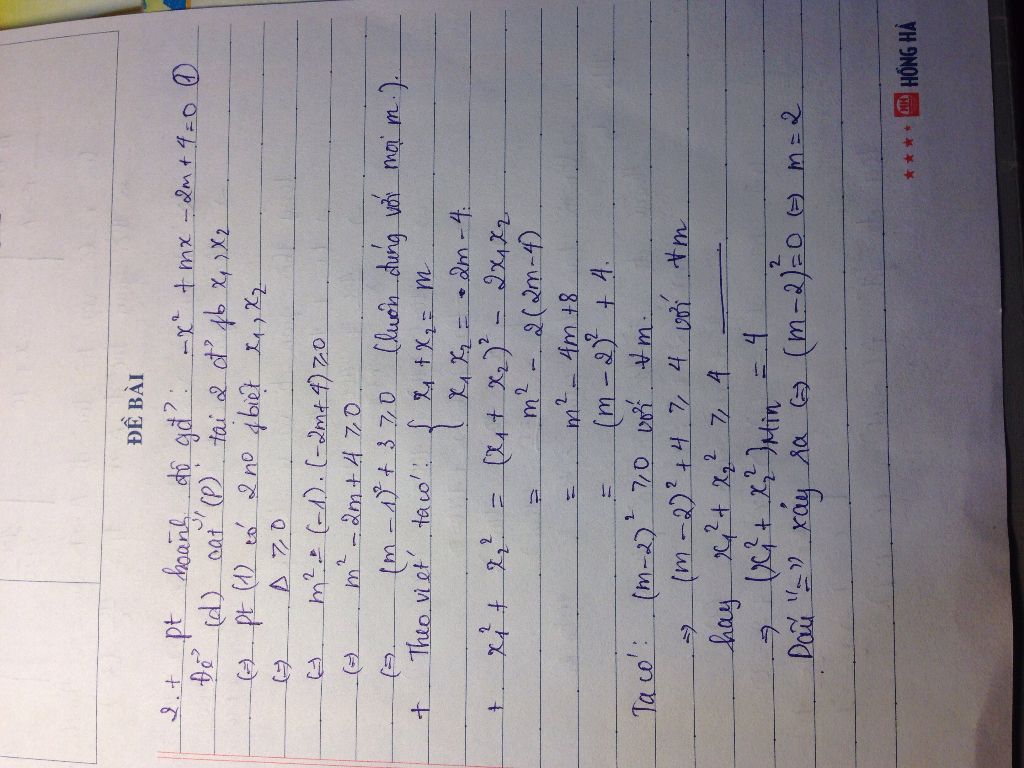 ĐỀ BÀI
2. + pt hoành độ gđ : -x² + mx - 2m + 4 = 0 ①
Để (d) cắt (P) tại 2 đ' pb x₁, x₂
(=) pt (1) có 2 no pbiệt x₁, x₂
(=) Δ ≥ 0
(=) m² - (-1).(-2m+4) ≥ 0
(=) m² - 2m + 4 ≥ 0
(=) (m-1)² + 3 ≥ 0 (luôn đúng với mọi m.).
+ Theo viet ta có: { x₁ + x₂ = m
x₁x₂ = 2m - 4.
+ x₁² + x₂² = (x₁ + x₂)² - 2x₁x₂
= m² - 2(2m-4)
= m² - 4m + 8
= (m-2)² + 4.
Ta có: (m-2)² ≥ 0 với ∀m.
=> (m-2)² + 4 ≥ 4 với ∀m
hay x₁² + x₂² ≥ 4
=> (x₁² + x₂²)Min = 4
Dấu "=" xảy ra (=) (m-2)² = 0 (=) m = 2
★★★★ HH HỒNG HÀ